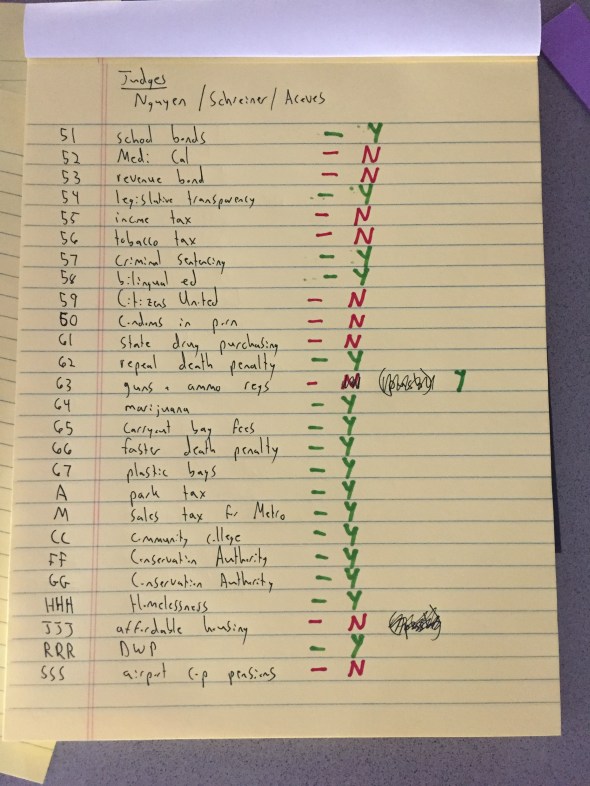 Judges
Nguyen / Schreiner / Aceves
51 school bonds - Y
52 Medi Cal - N
53 revenue bond - N
54 legislative transparency - Y
55 income tax - N
56 tobacco tax - N
57 criminal sentencing - Y
58 bilingual ed - Y
59 Citizens United - N
60 Condoms in porn - N
61 state drug purchasing - N
62 repeal death penalty - Y
63 guns + ammo regs - Y
64 marijuana - Y
65 carryout bag fees - Y
66 faster death penalty - Y
67 plastic bags - Y
A park tax - Y
M sales tax for Metro - Y
CC community college - Y
FF Conservation Authority - Y
GG Conservation Authority - Y
HHH Homelessness - Y
JJJ affordable housing - N
RRR DWP - Y
SSS airport cop pensions - N